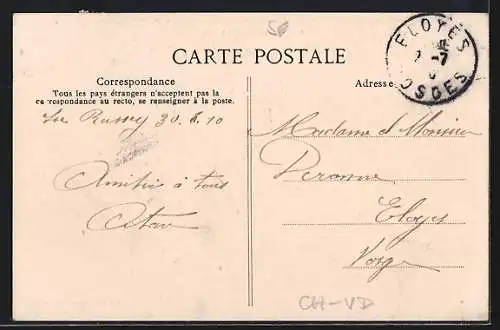 CARTE POSTALE
ELOYES
-7
OSGES
Correspondance
Tous les pays étrangers n'acceptent pas la
correspondance au recto, se renseigner à la poste.
Adresse
Le Russey 30.6.10
Amitié à tous
Madame et Monsieur
Peronne
Eloyes
Vosges
CH-VD